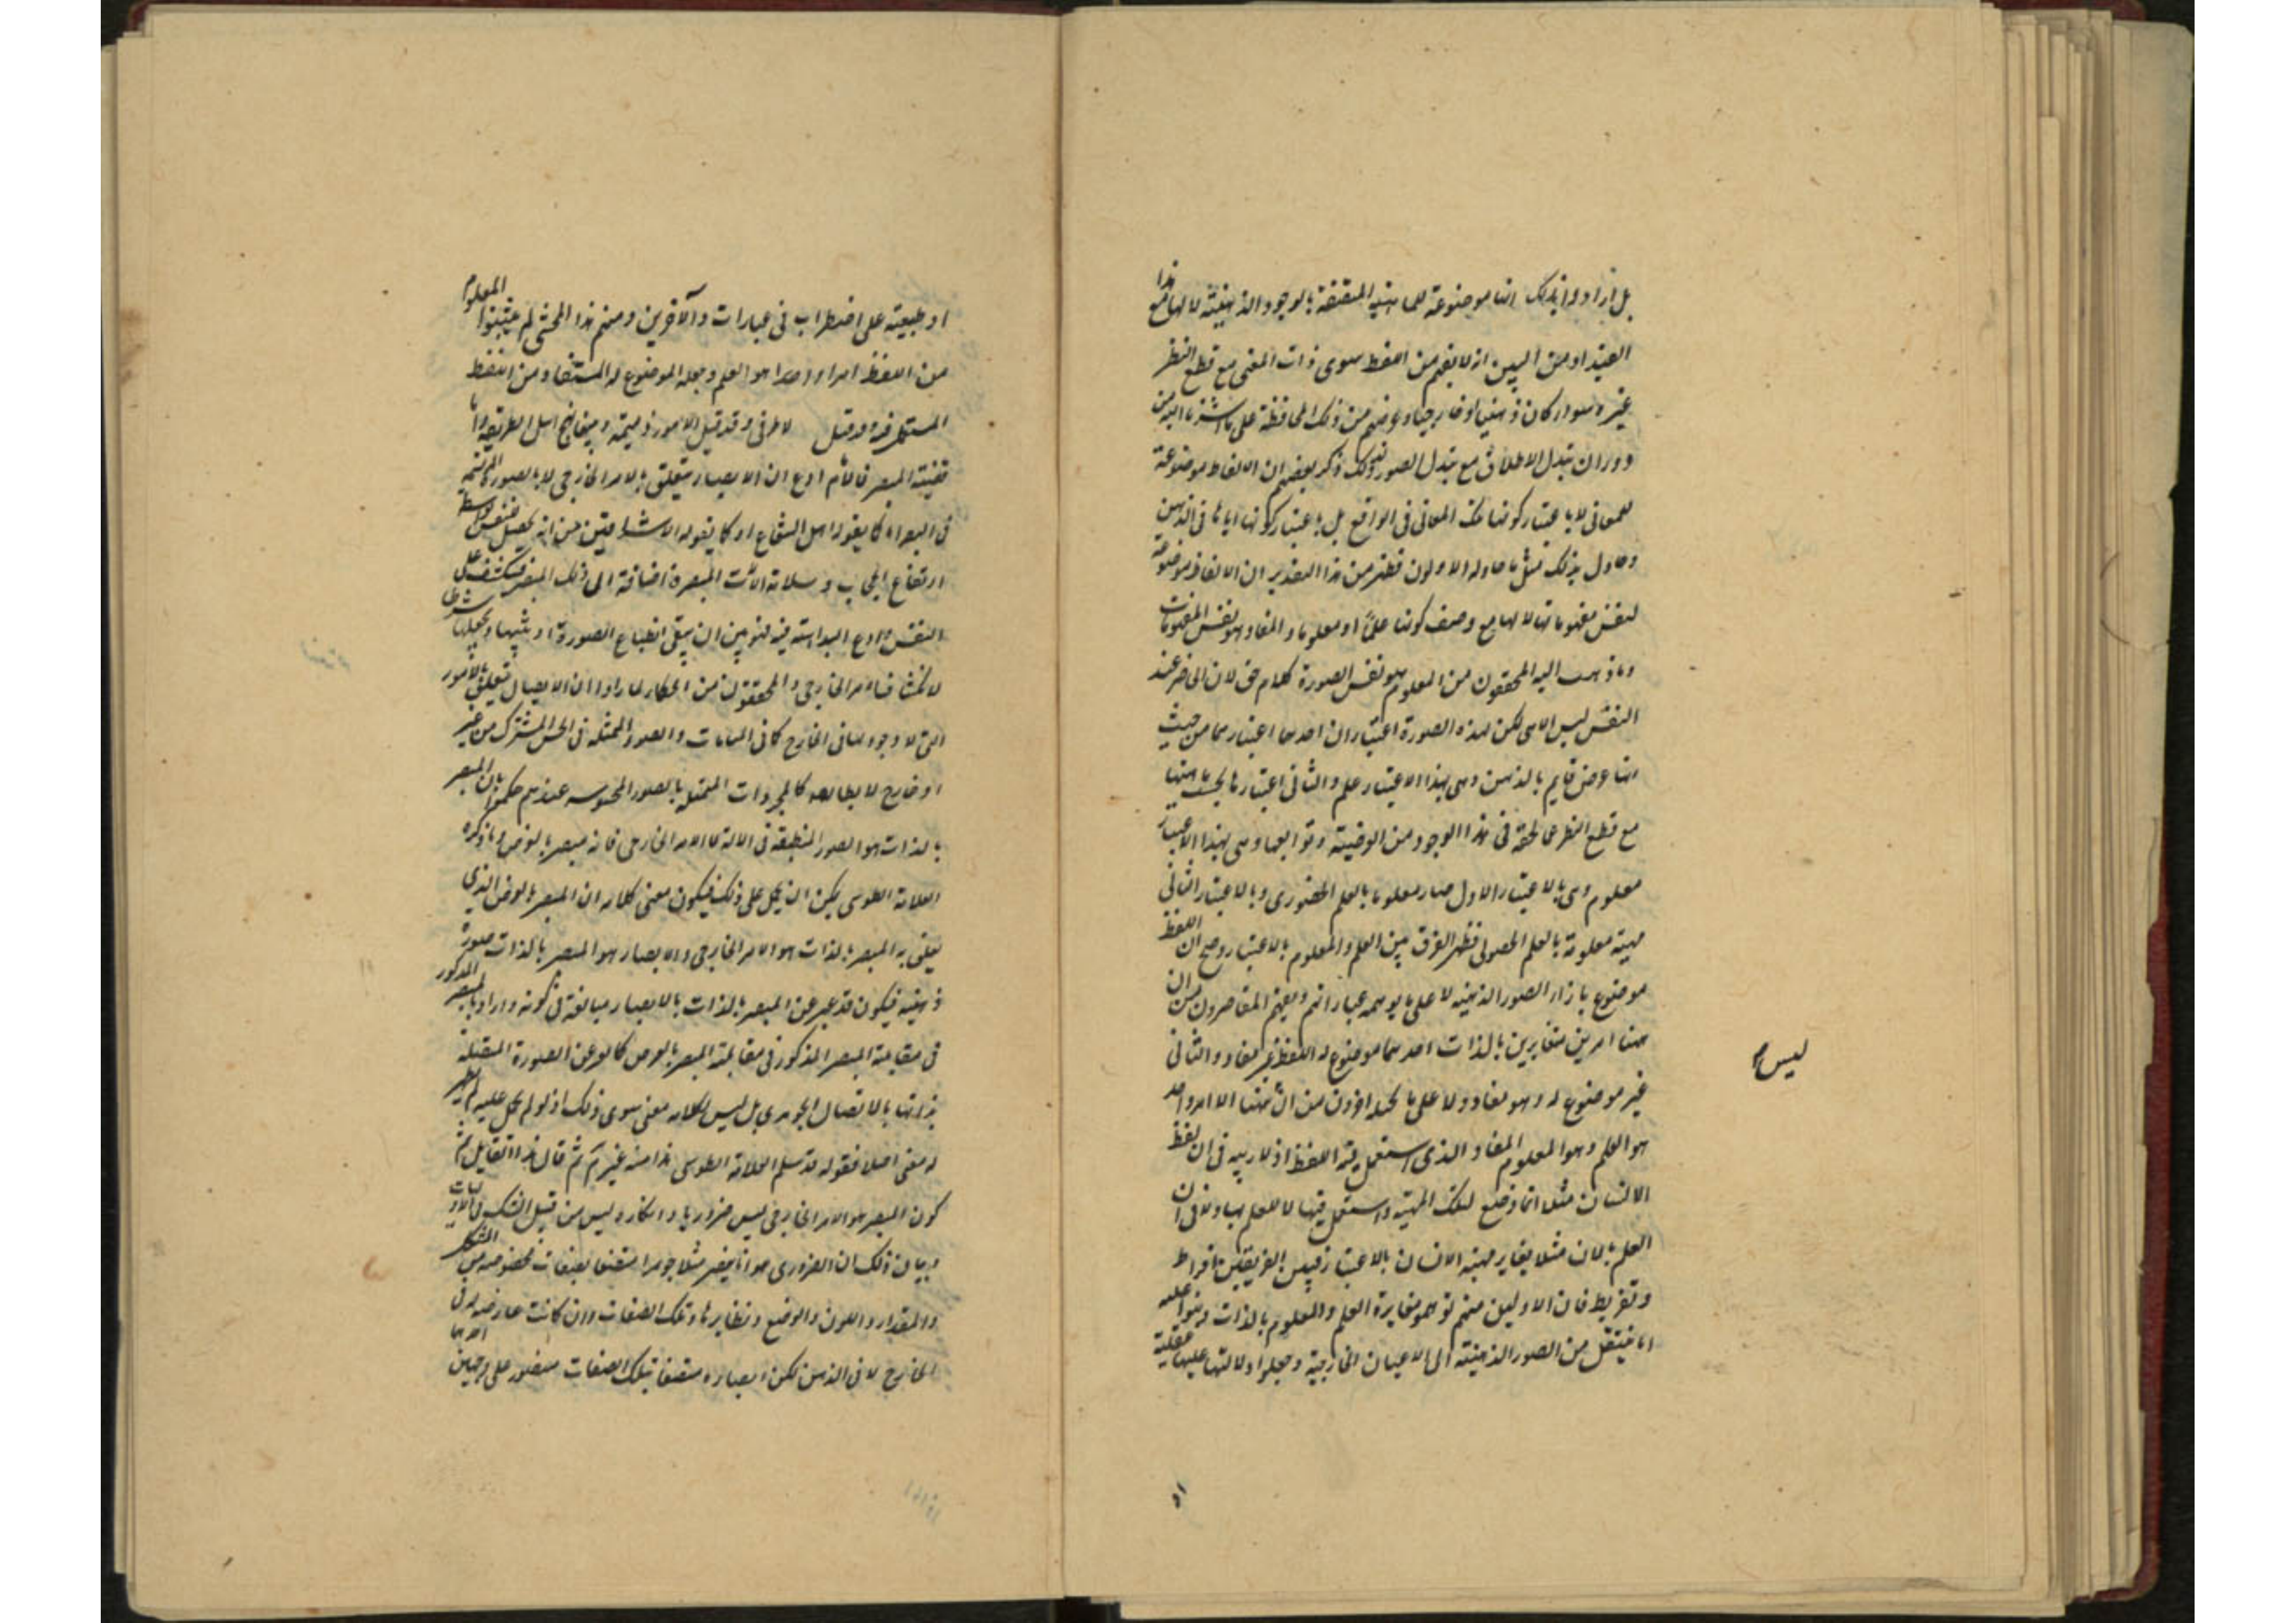 بل ارادوا بذلك انها موضوعة للماهية المتصفة بالوجود الذهنية لا لها مع هذا
القيد او من البين انه لا يفهم من اللفظ سوى ذات المعنى مع قطع النظر
غيره سواء كان ذهنيا او خارجيا وغرضهم من ذلك المحافظة على ما اشتهر
دوران تبدل الاطلاق مع تبدل الصور ولذلك ذكر بعضهم ان الالفاظ موضوعة
للمعانى لا باعتبار كونها تلك المعانى فى الواقع بل باعتبار كونها اياها فى الذهن
وحاول بذلك مثل ما حاوله الاولون فظهر من هذا التقدير ان الالفاظ موضوعة
لنفس مفهوماتها لا لها مع وصف كونها علما او معلوما والمفاد هو نفس المفهومات
وما ذهب اليه المحققون من المعلوم هو نفس الصورة كلام حق لان الحاضر عند
النفس ليس الا هى لكن لهذه الصورة اعتباران احدهما اعتبارها من حيث
انها عرض قايم بالذهن وهى بهذا الاعتبار علم والثانى اعتبارها بحسب ماهيتها
مع قطع النظر عما لحقه فى هذا الوجود من الوضية وتوابعها وهى بهذا الاعتبار
معلوم وهى بالاعتبار الاول صار معلوما بالعلم الحضورى وبالاعتبار الثانى
مهية معلومة بالعلم الحصولى فظهر الفرق بين العلم والمعلوم بالاعتبار وصح ان اللفظ
موضوع بازاء الصور الذهنية لا على ما يوهمه عباراتهم ويفهم القاصرون من ان
ههنا امرين متغايرين بالذات احدهما موضوع له اللفظ غير مفاد والثانى
غير موضوع له وهو مفاد ولا على ما تخيله اخرون من ان ههنا الا امر واحد
ليس م
هو العلم وهو المعلوم المفاد والذى استعمل فيه اللفظ اذ لا ريبه فى ان لفظ
الانسان مثلا انما وضع لتلك المهية واستعمل فيها لا للعلم بها ولا فى ان
العلم بالانسان مثلا يغاير مهية الانسان بالاعتبار فبين الفريقين افراط
وتفريط فان الاولين منهم توهموا مغايرة العلم والمعلوم بالذات وبنوا عليه
اما فينتقل من الصور الذهنية الى الاعيان الخارجية وجعلوا دلالتها عليها عقلية
او طبيعية على اضطراب فى عبارات والآخرين ومنهم هذا المحشى لم يثبتوا المعلوم
من اللفظ امرا واحدا هو العلم وجعله الموضوع له المستفاد من اللفظ
المستعمل فيه وقد قيل لا طرفى وقد قيل الامور ذميمة اهل الطريقة واما
قضية المبصر فالامام ادعى ان الابصار يتعلق بالامر الخارجى لا بالصور المرتسمة
فى البصر اما كما يقوله اهل الشعاع او كما يقوله الاشراقيين من انه يحصل للنفس بواسطة
ارتفاع الحجاب وسلامة الآلات المبصرة اضافة الى ذلك المبصر فينكشف على
النفس وادعى البداهة فيه فهو بين ان ينفى انطباع الصورة او يثبتها ويجعلها شرطا
لانكشاف الامر الخارجى والمحققون من الحكماء لما راوا ان الابصار يتعلق بالامور
التى لا وجود لها فى الخارج كما فى المنامات والصور المتمثلة فى الحس المشترك من غير
او خارج لا يطابقه كالمجردات المتمثلة بالصور المحسوسه عندهم حكموا بان المبصر
بالذات هو الصور المنطبعة فى الالة لا الامر الخارجى فانه مبصر بالعرض وما ذكره
العلامة الطوسى يمكن ان يحمل على ذلك فيكون معنى كلامه ان المبصر بالعرض الذى
يعنى به المبصر بالذات هو الامر الخارجى والابصار هو المبصر بالذات صورة
ذهنية فيكون قد عبر عن المبصر بالذات بالابصار مبالغة فى كونه واراد بالمبصر المذكور
فى مقابلة المبصر المذكور فى مقابلة المبصر بالعرض كما لو عن الصورة المتصلة
بذاتها بالاتصال الجوهرى بل ليس لكلامه معنى سوى ذلك اذ لو لم يحمل عليه لم يظهر
له معنى اصلا فقوله قد سلم العلامة الطوسى هذا منه غير تم ثم قال هذا القايل ثم
كون المبصر هو الامر الخارجى ليس ضروريا وانكاره ليس من قبيل الشك فى الاوليات
وبيان ذلك ان الضرورى هو انا نبصر مثلا جوهرا متصفا بصفات مخصوصه من الشكل
والمقدار واللون والوضع ونظايرها وتلك الصفات وان كانت عارضه له فى
الخارج لا فى الذهن لكن ابصاره متصفا بتلك الصفات متصور على وجهين احدهما